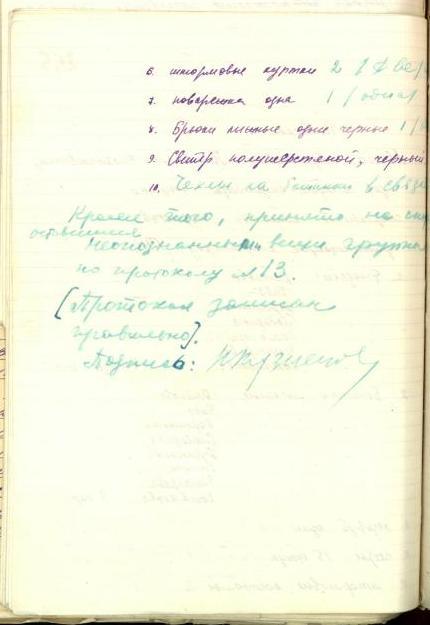 6. штормовые куртки 2 / две /
7. поварешка одна 1 / одна /
8. Брюки лыжные одни черные 1 /
9. Свитр полушерстеной, черный
10. Чехлы на ботинки в связке
Кроме того, принято на
оставшиеся
неопознанными вещи группы
по протоколу №13.
[Протокол записан
правильно].
Подпись: